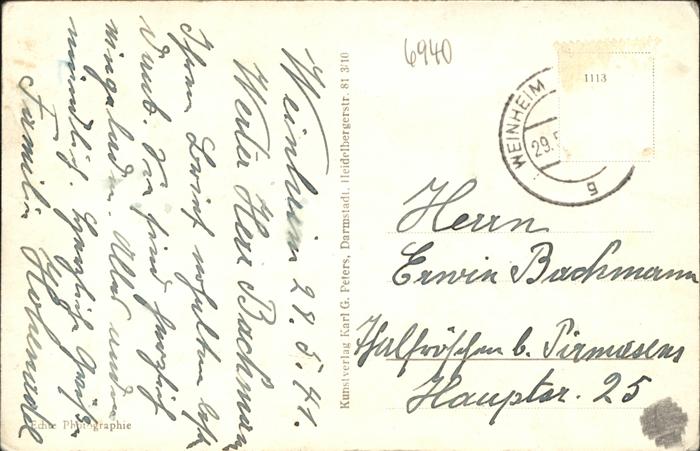 Weinheim 28.5.41.
Werter Herr Bachmann
Ihren Brief erhalten besten
Dank. Sie sind herzlich
eingeladen. Alles andere
mündlich. Herzliche Grüße
Familie
Echte Photographie
Kunstverlag Karl G. Peters, Darmstadt, Heidelbergerstr. 81 3/10
6940
1113
WEINHEIM
29.5
g
Herrn
Erwin Bachmann
Thalfröschen b. Pirmasens
Hauptstr. 25